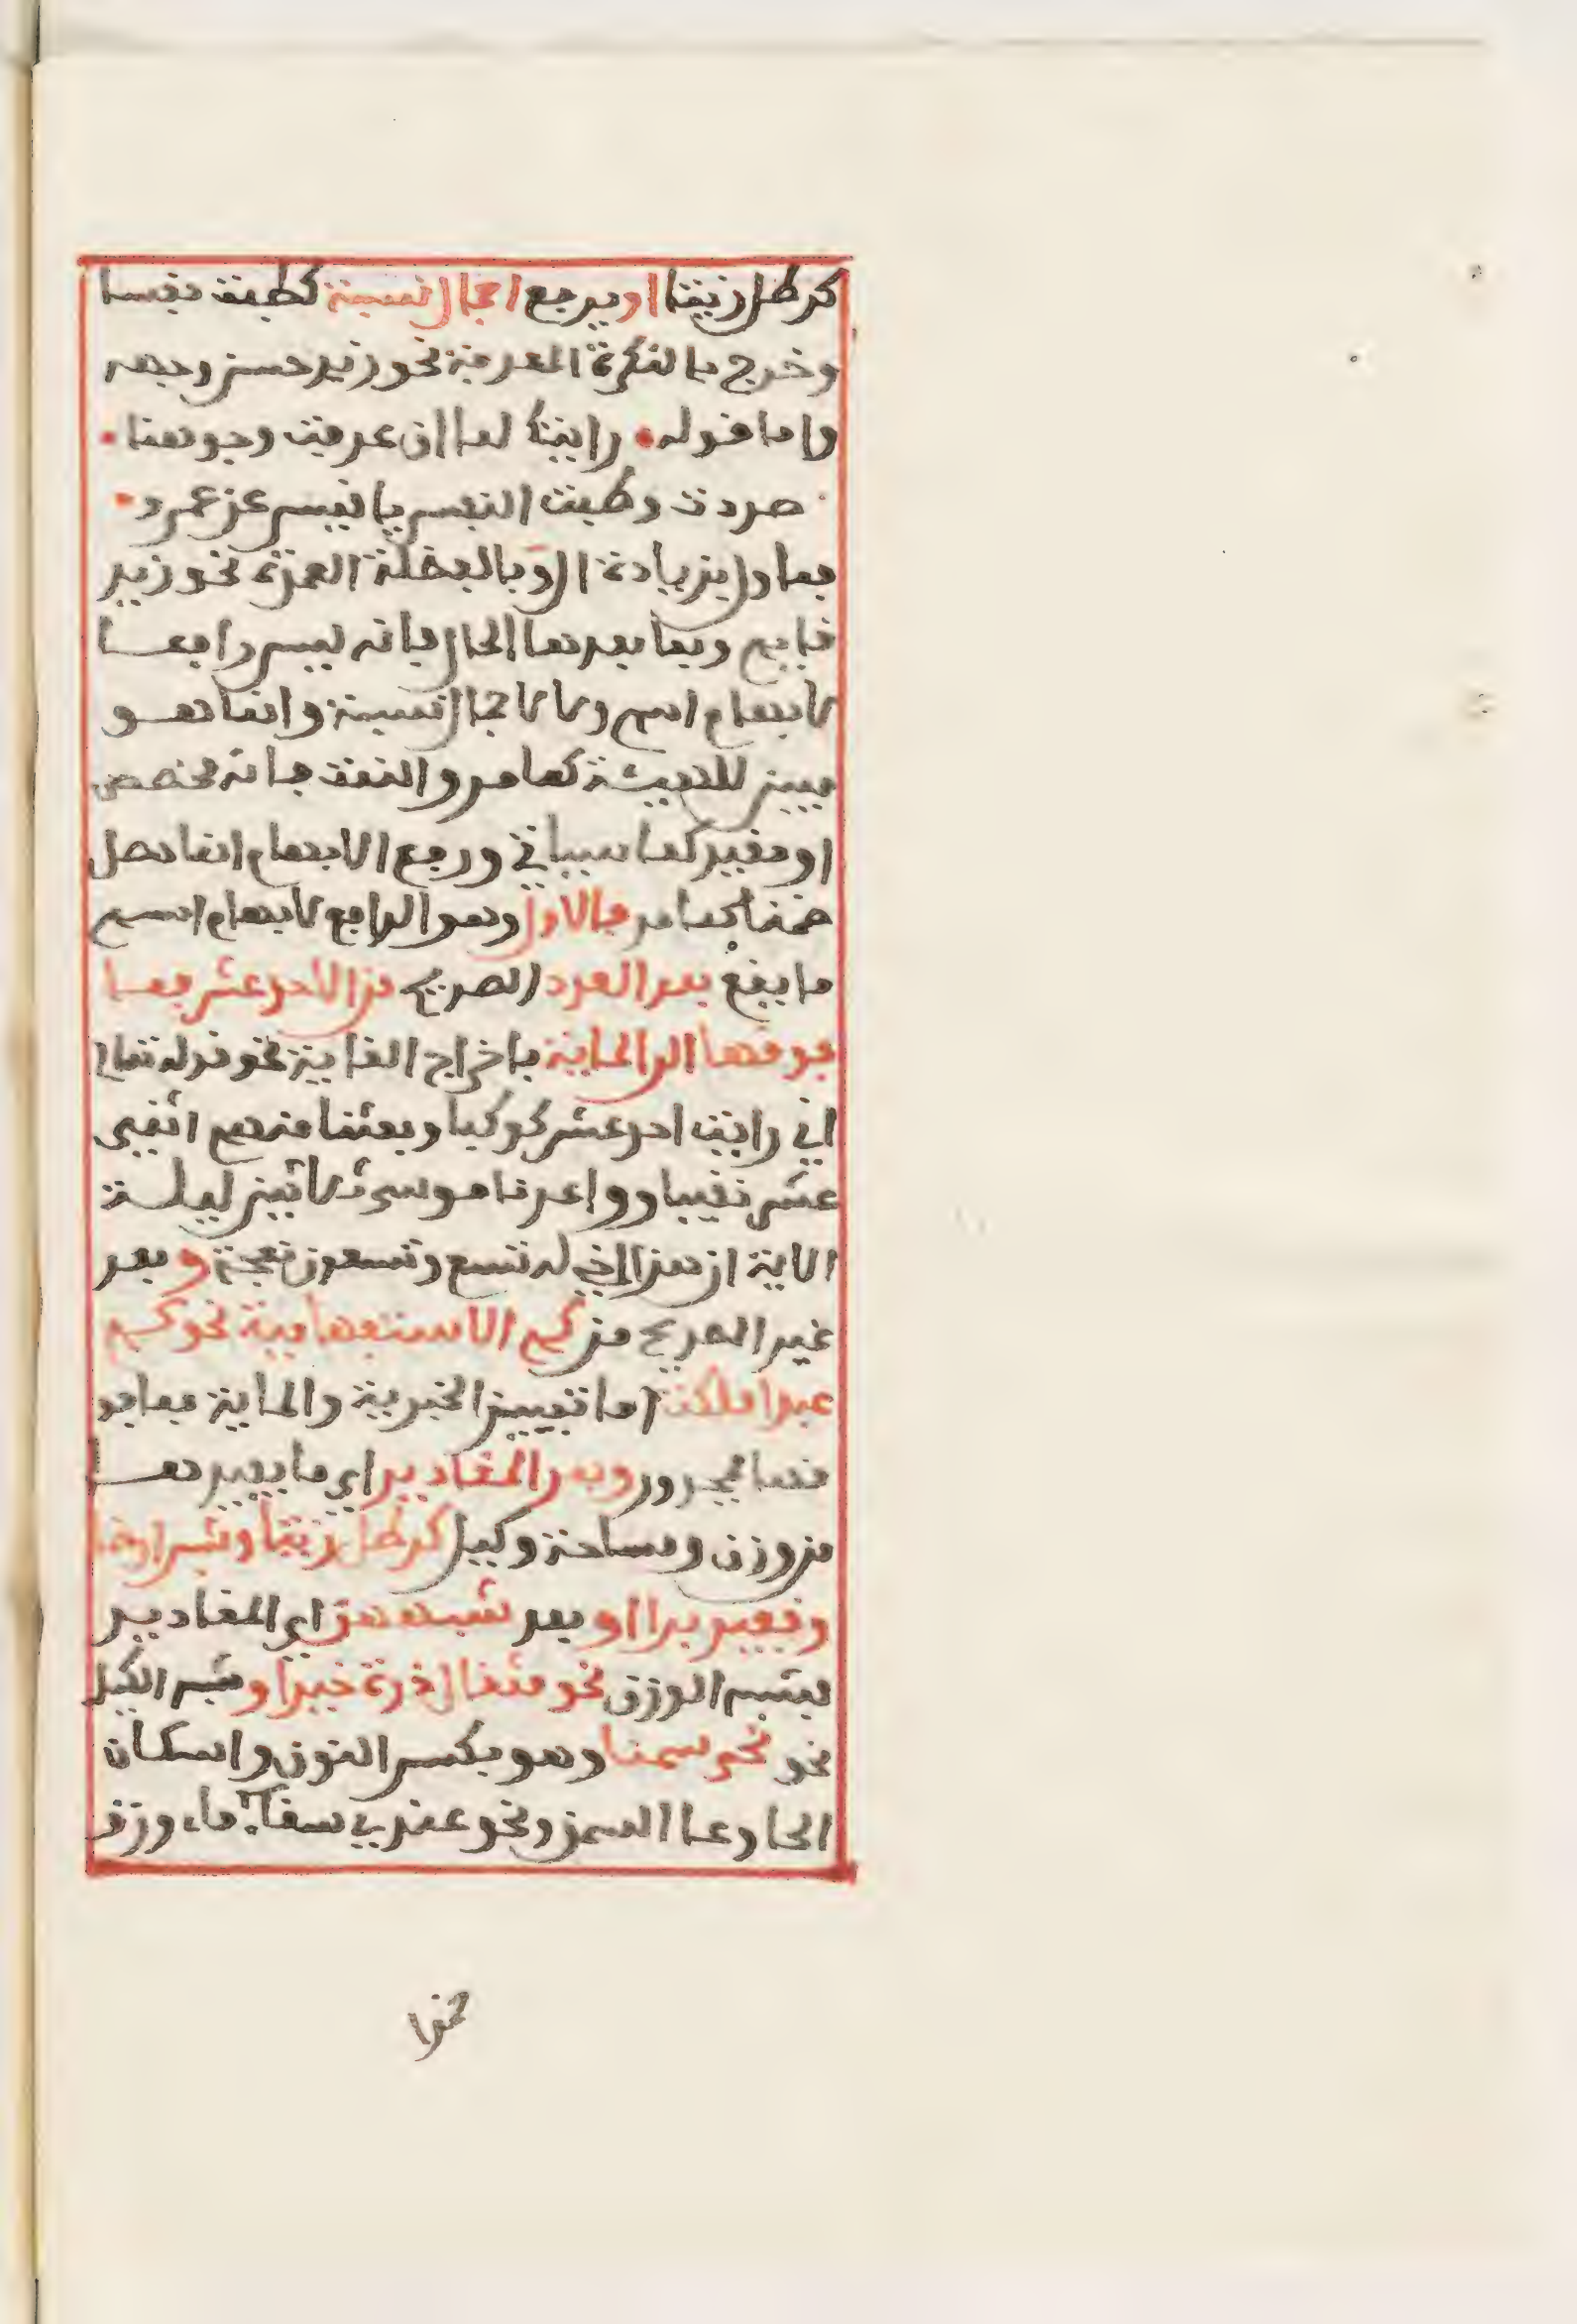 كرطل زيتا او يرفع اجمال نسبة كطبت نفسا
وخرج بالنكرة المعرفة نحو زيد حسن وجهه
واما قوله • رايتك لما ان عرفت وجوهنا •
صددت وطبت النفس يا قيس عن عمرو •
فماول بزيادة ال وبالفضلة العمدة نحو زيد
قايم وبما بعدهما الحال فانه ليس رافعا
لابهام اسم ولا لاجمال نسبة وانما هو
مبين للهيئة كما مر والنعت فانه مخصص
او مقيد كما سياتي ورفع الابهام انما حصل
ضمنا كما مر فالاول وهو الرافع لابهام اسم
ما يقع بعد العدد الصريح من الاحد عشر فما
فوقها الى الماية باخراج الغاية نحو قوله تعالى
اني رايت احد عشر كوكبا وبعثنا منهم اثني
عشر نقيبا وواعدنا موسى ثلاثين ليلة
الاية ان هذا اخي له تسع وتسعون نعجة وبعد
غير الصريح من كم الاستفهامية نحو كم
عبدا ملكت اما تمييز الخبرية والماية فما فو
قها مجرور وبعد المقادير اي ما يقدر بها
من وزن ومساحة وكيل كرطل زيتا وشبر ارضا
وقفيز برا او بعد شبههن اي المقادير
فشبه الوزن نحو مثقال ذرة خيرا وشبه الكيل
نحو نحي سمنا وهو بكسر النون واسكان
الحا وعا السمن ونحو عندي سقاء ماء وزق